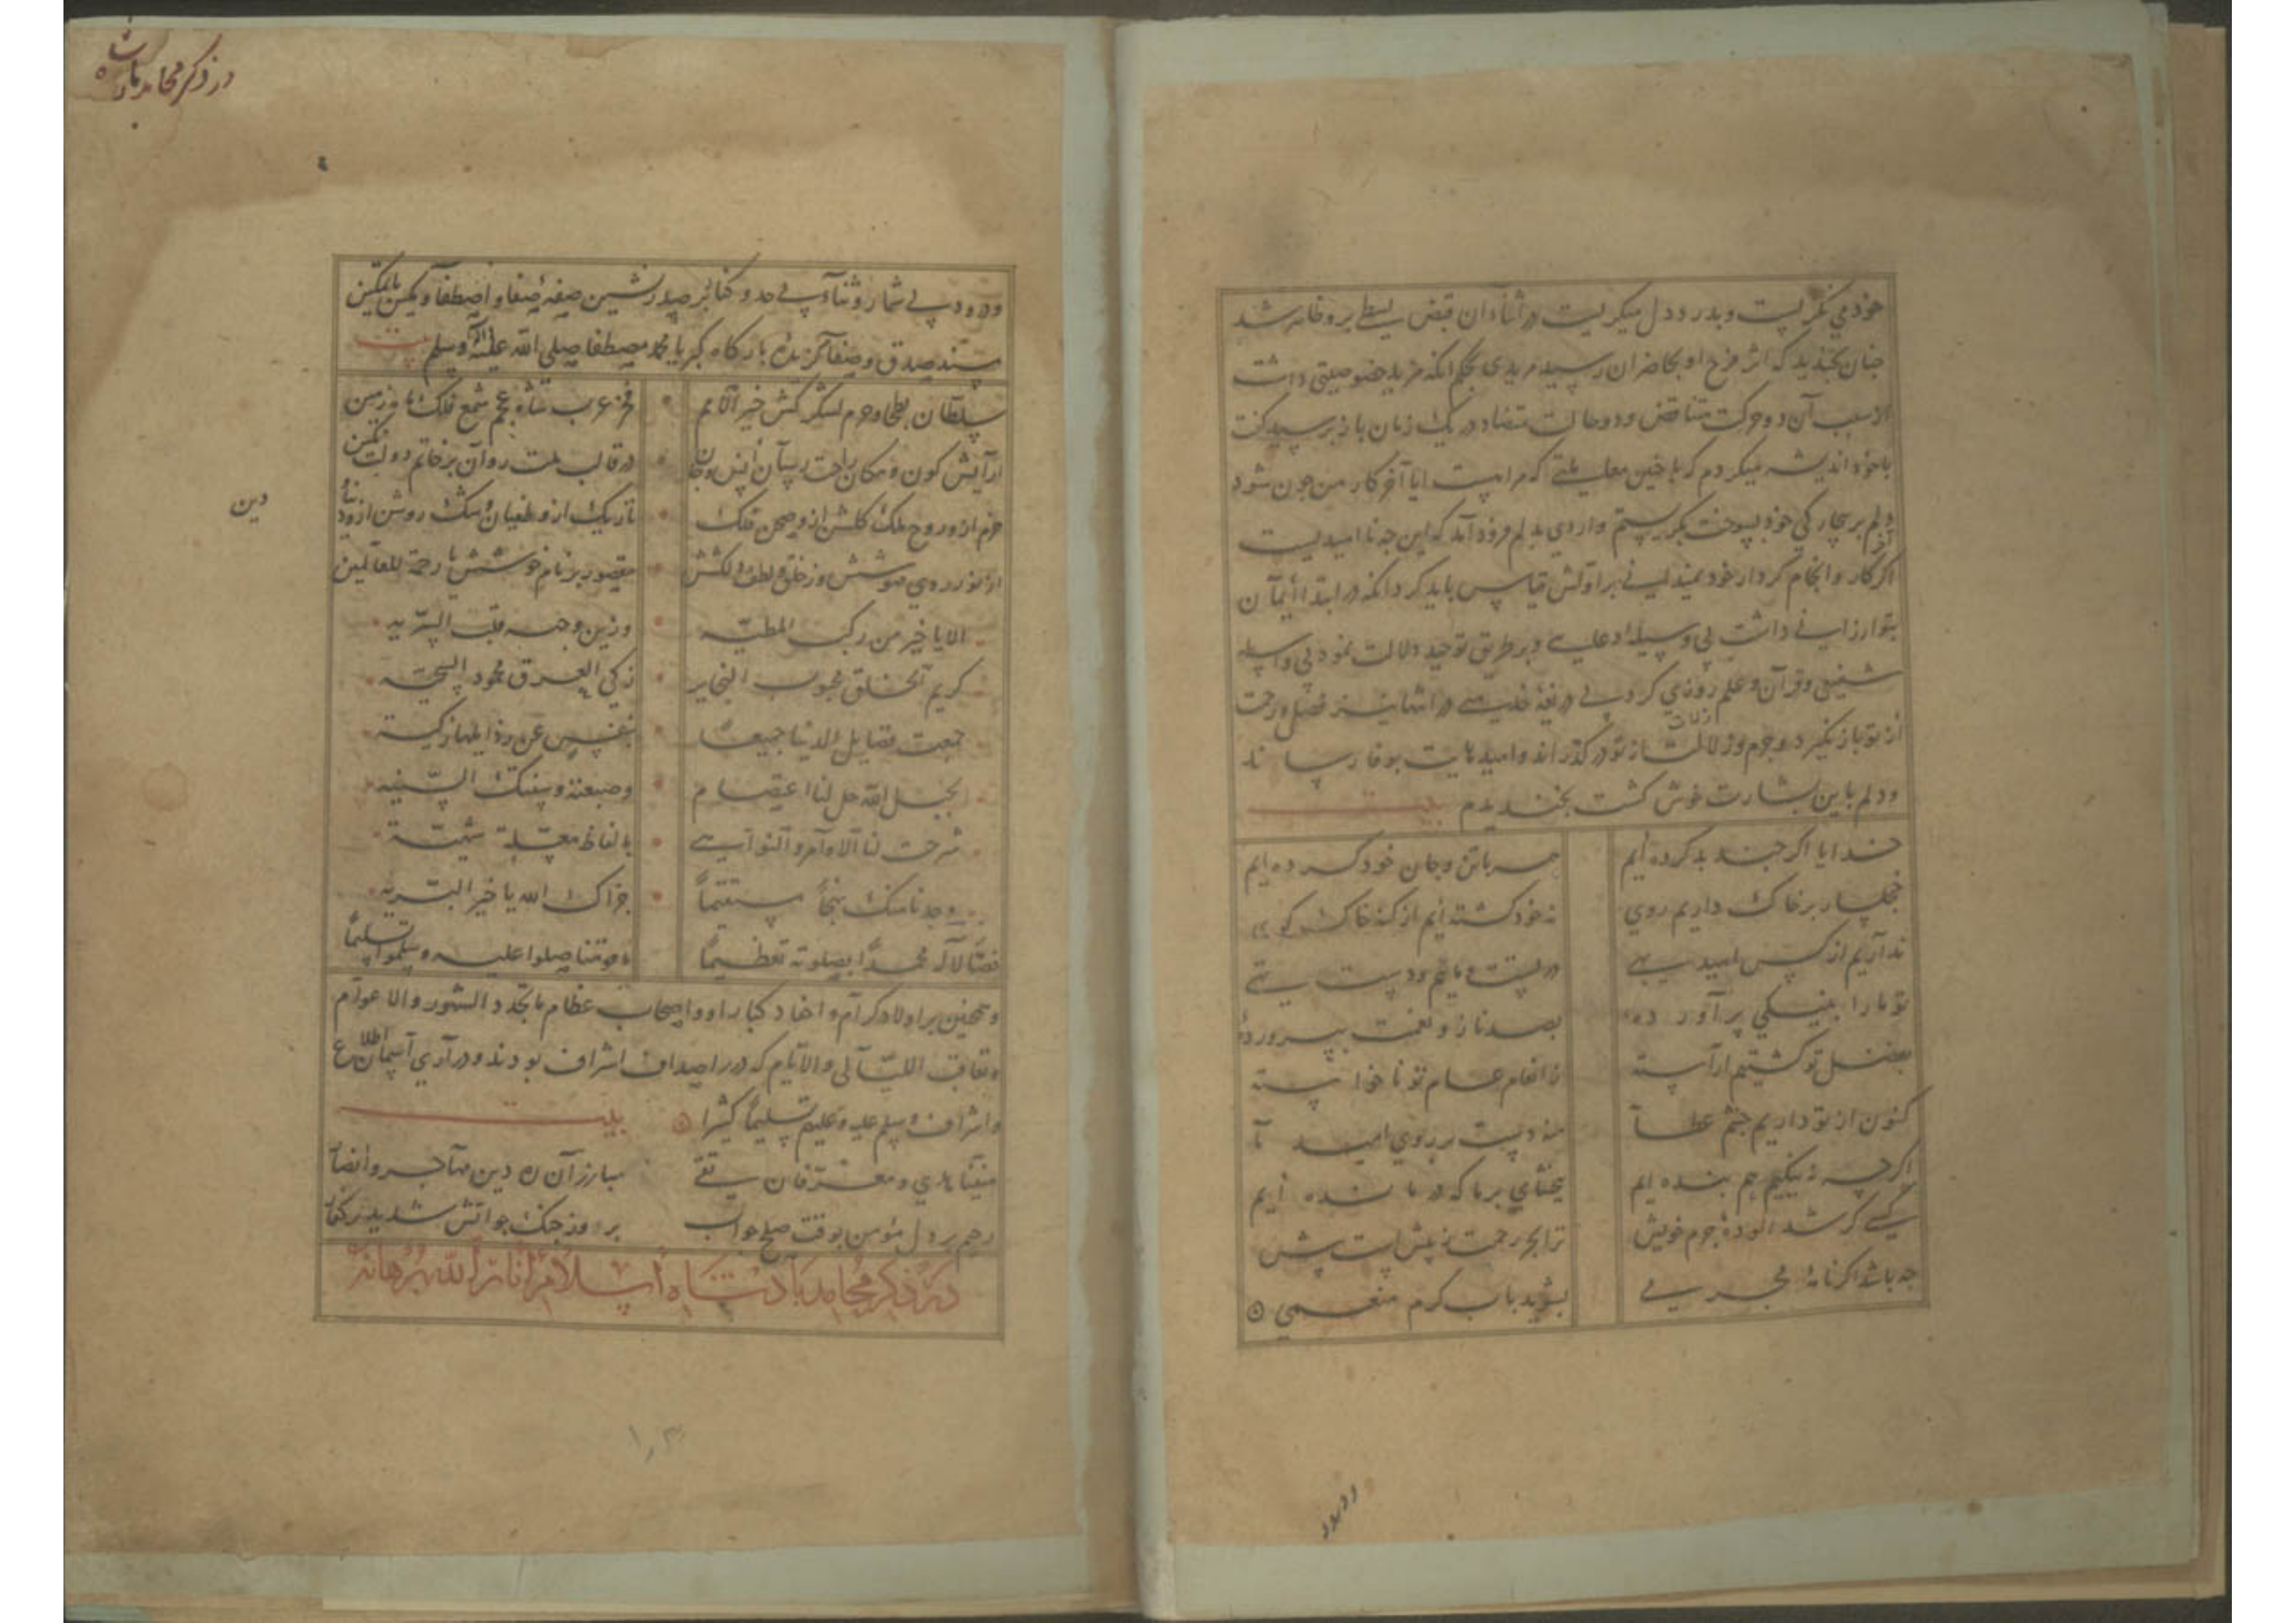 خود می نگریست و بدرد دل میگریست در اثناء آن قبض بسطی برو ظاهر شد
چنان بخندید که اثر فرح او بحاضران رسید مریدی بحکم انکه مزید خصوصیتی داشت
از سبب آن دو حرکت متناقض و دو حالت متضاد در یک زمان باز پرسید گفت
با خود اندیشه میکردم که با چنین معاملتی که مراست ایا آخر کار من چون شود
دلم بر بیچارگی خود بسوخت بگریستم واردی بدلم فرود آمد که این چه ناامیدیست
آخر کار و انجام کردار خود بر اولش قیاس باید کرد انکه در ابتدا ایمان
بتو ارزانی داشت بی وسیله و بر طریق توحید دلالت نمود بی واسطه
شفیعی و قرآن و علم روزی کرد بی در انتها نیز فضل و رحمت
از تو باز نگیرد و جرم و زلات از تو در گذراند و امیدهایت بوفا رساند
و دلم باین بشارت خوش گشت بخندیدم بیت
خدایا اگر چند بد کرده ایم همه با تن و جان خود کرده ایم
خجلسار بر خاک داریم روی نه خود گشته ایم از گنه خاک کوی
نداریم از کس امید بهی در پست مانیم و دست تهی
تو ما را به نیکی بر آورده بصد ناز و نعمت بپرورده
بفضل تو گشتیم آراسته ز انعام عام تو ناخواسته
کنون از تو داریم چشم عطا منه دست بر روی امید ما
اگر چه نه نیکیم هم بنده ایم ببخشای بر ما که درمانده ایم
کسی گر شد الوده جرم خویش ترا بحر رحمت ز پیش است پیش
چه باشد اگر نامه مجرمی بشوید بآب کرم منعمی
ودرود
در ذکر محامد پادشاه
ودرود بی شمار و ثناء بی حد و کنار بر صدرنشین صفه صفا و اصطفا و مکین با تمکین
مسند صدق و صفا گزیده بارگاه کبریا محمد مصطفا صلی الله علیه و آله وسلم بیت
سلطان بطحا و حرم لشکرکش خیر الامم فخر عرب شاه عجم شمع فلک ماه زمین
آرایش کون و مکان راحت رسان انس و جان در قالب ملت روان بر خاتم دولت نگین
خرم ازو روح ملک گلشن ازو صحن فلک تاریک ازو طغیان و شک روشن ازو دنیا و
دین
از نور روی مهوشش وز خلق و لطف دلکشش مقصود بر نام خوشش یا رحمة للعالمین
الا یا خیر من رکب المطیه وزین وجنه قلب البریه
کریم الخلق محبوب النجایر زکی العرق محمود السجیه
جمعت فضایل الدنیا جمیعا بنفس عن رذایلها زکیه
بحبل الله حل لنا اعتصام وصبغته وسنتک السنیه
شرحت لنا الاوامر والنواهی بالفاظ معسلة شهیه
وجدنا منک نهجا مستقیما جزاک الله یا خیر البریه
خص الاله محمدا بصلوته تعظیما یا مومنا صلوا علیه وسلموا تسلیما
و همچنین بر اولاد کرام و احفاد کبار او و اصحاب عظام ما تجدد الشهور والاعوام
و تعاقب اللیالی والایام که درر اصداف اشراف بودند و دراری آسمان اطلاع
و اشراف وسلم علیه وعلیهم تسلیما کثیرا بیت
مبارزان ره دین مهاجر و انصار
رحیم بر دل مومن بوقت صلح چو آب بروز جنگ چو آتش شدید بر کفار
در ذکر محامد پادشاه اسلام انار الله برهانه
۱۰۳